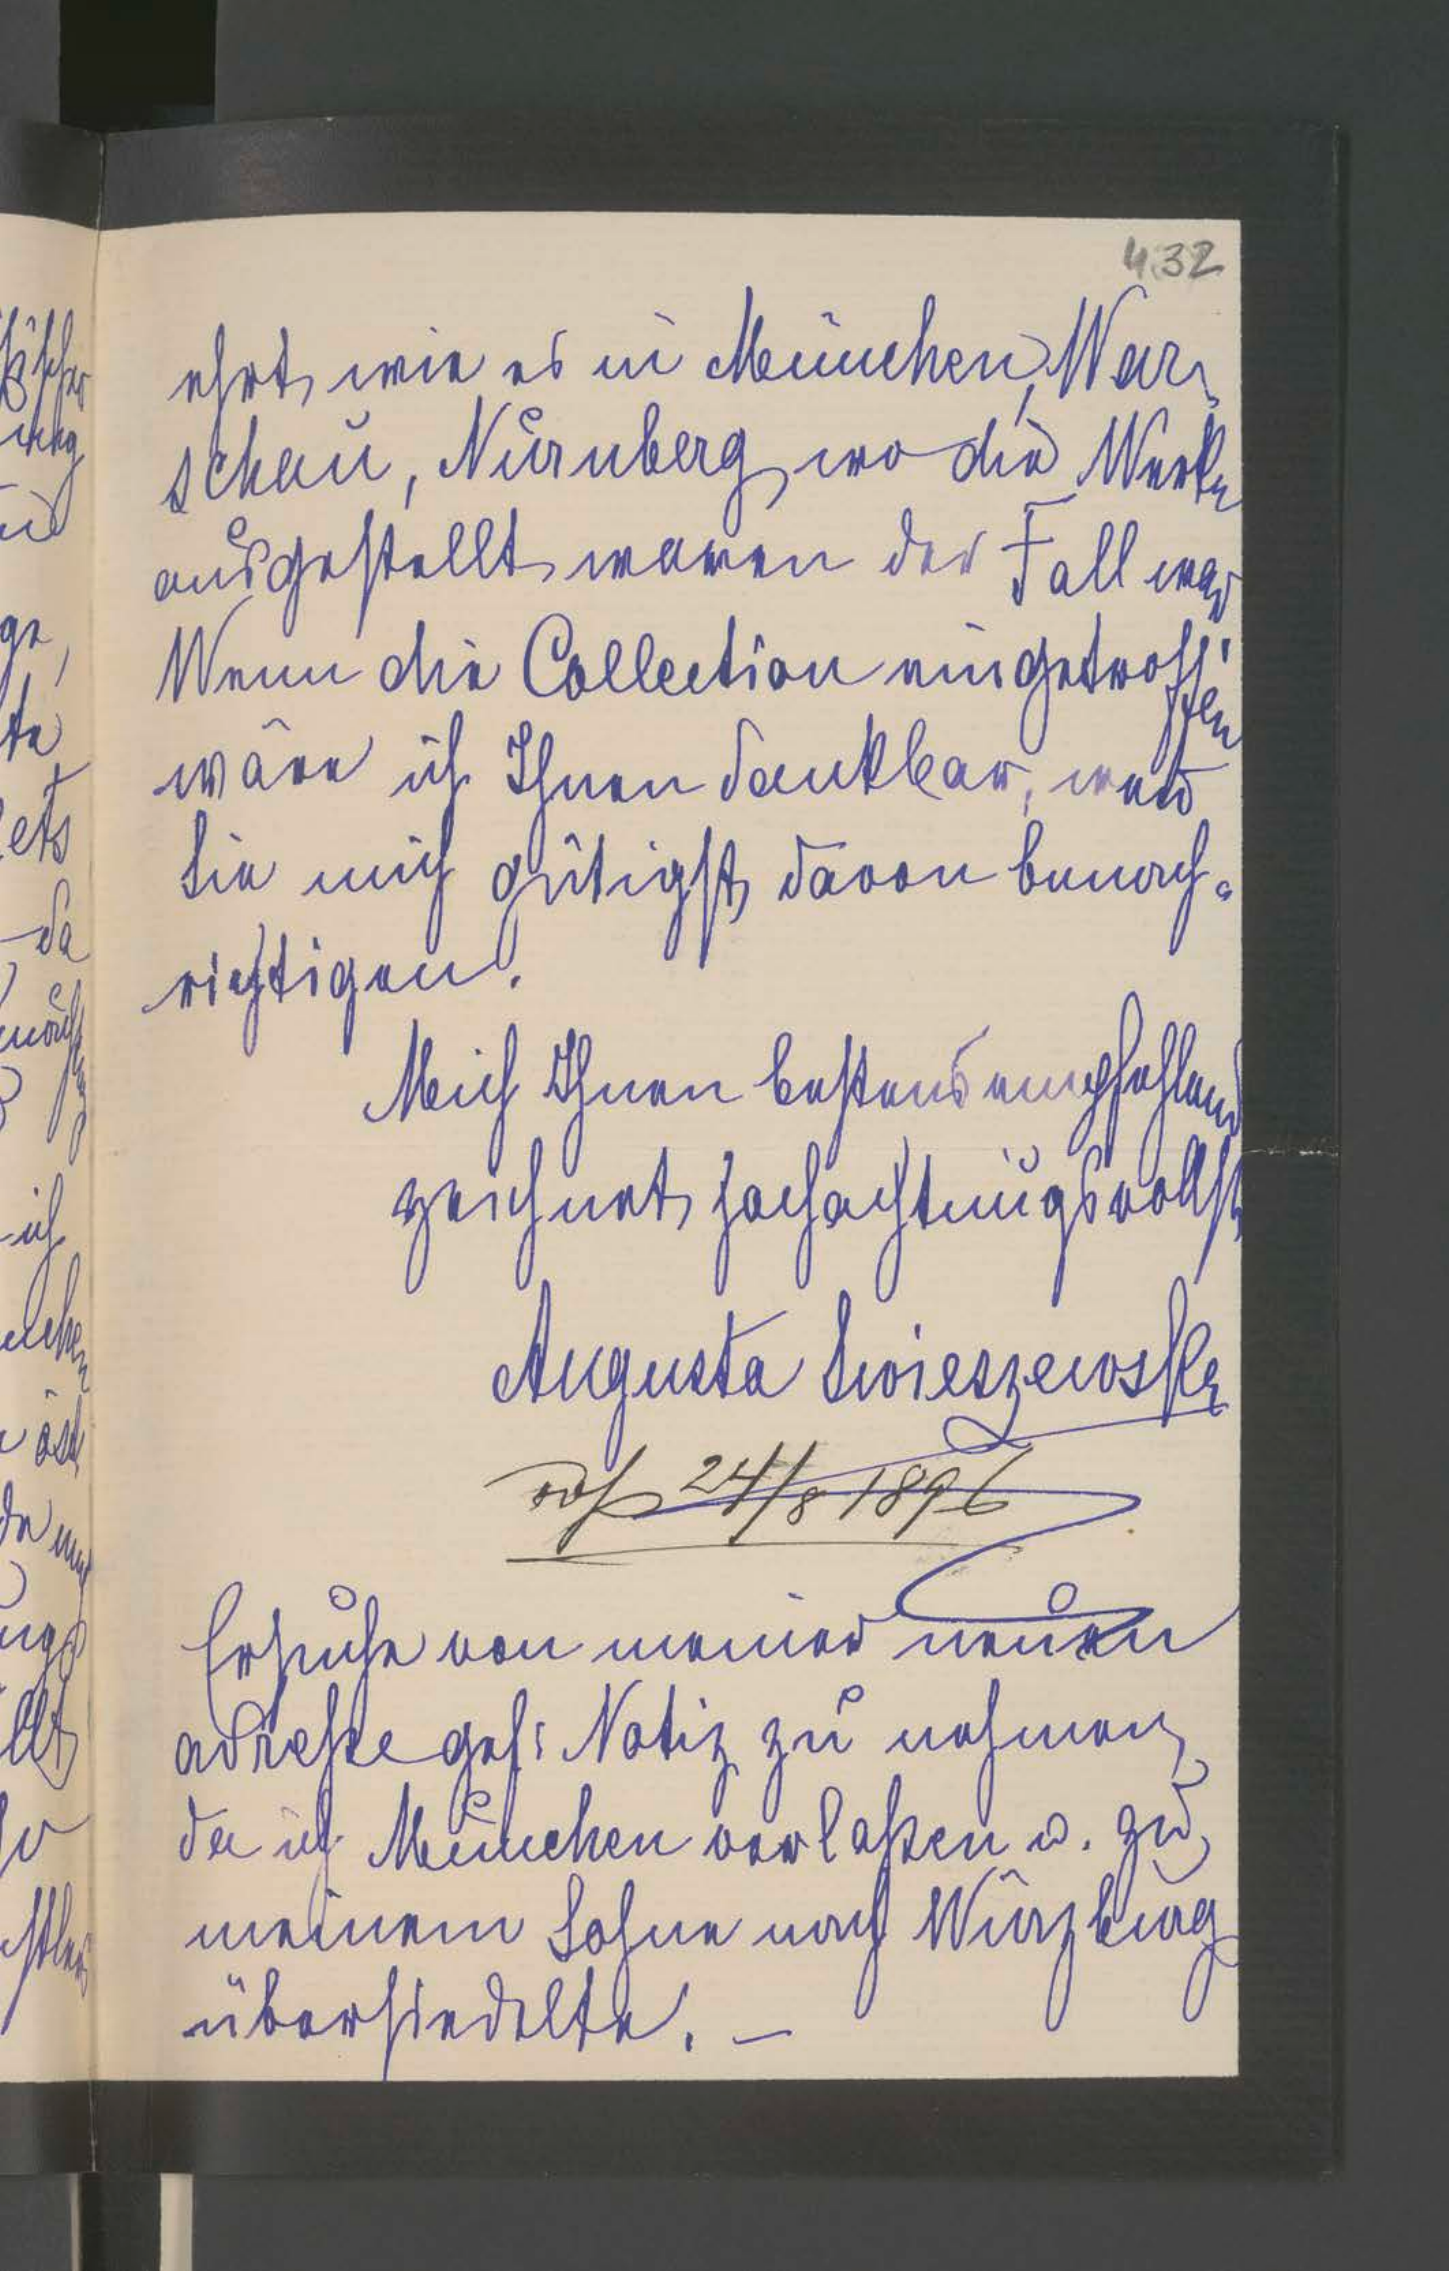 432
ehrt, wie es in München, War-
schau, Nürnberg, wo die Werke
ausgestellt waren der Fall war
Wenn die Collection eingetroffen
wäre ich Ihnen dankbar,
Sie mich gütigst davon benach-
richtigen.
Mich Ihnen bestens empfehlend
zeichnet hochachtungsvollst
Augusta Swieszewski
24/8 1896
Ersuche von meiner neuen
adresse gef: Notiz zu nehmen,
da ich München verlaßen u. zu
meinem Sohne nach Würzburg
übersiedelte. —